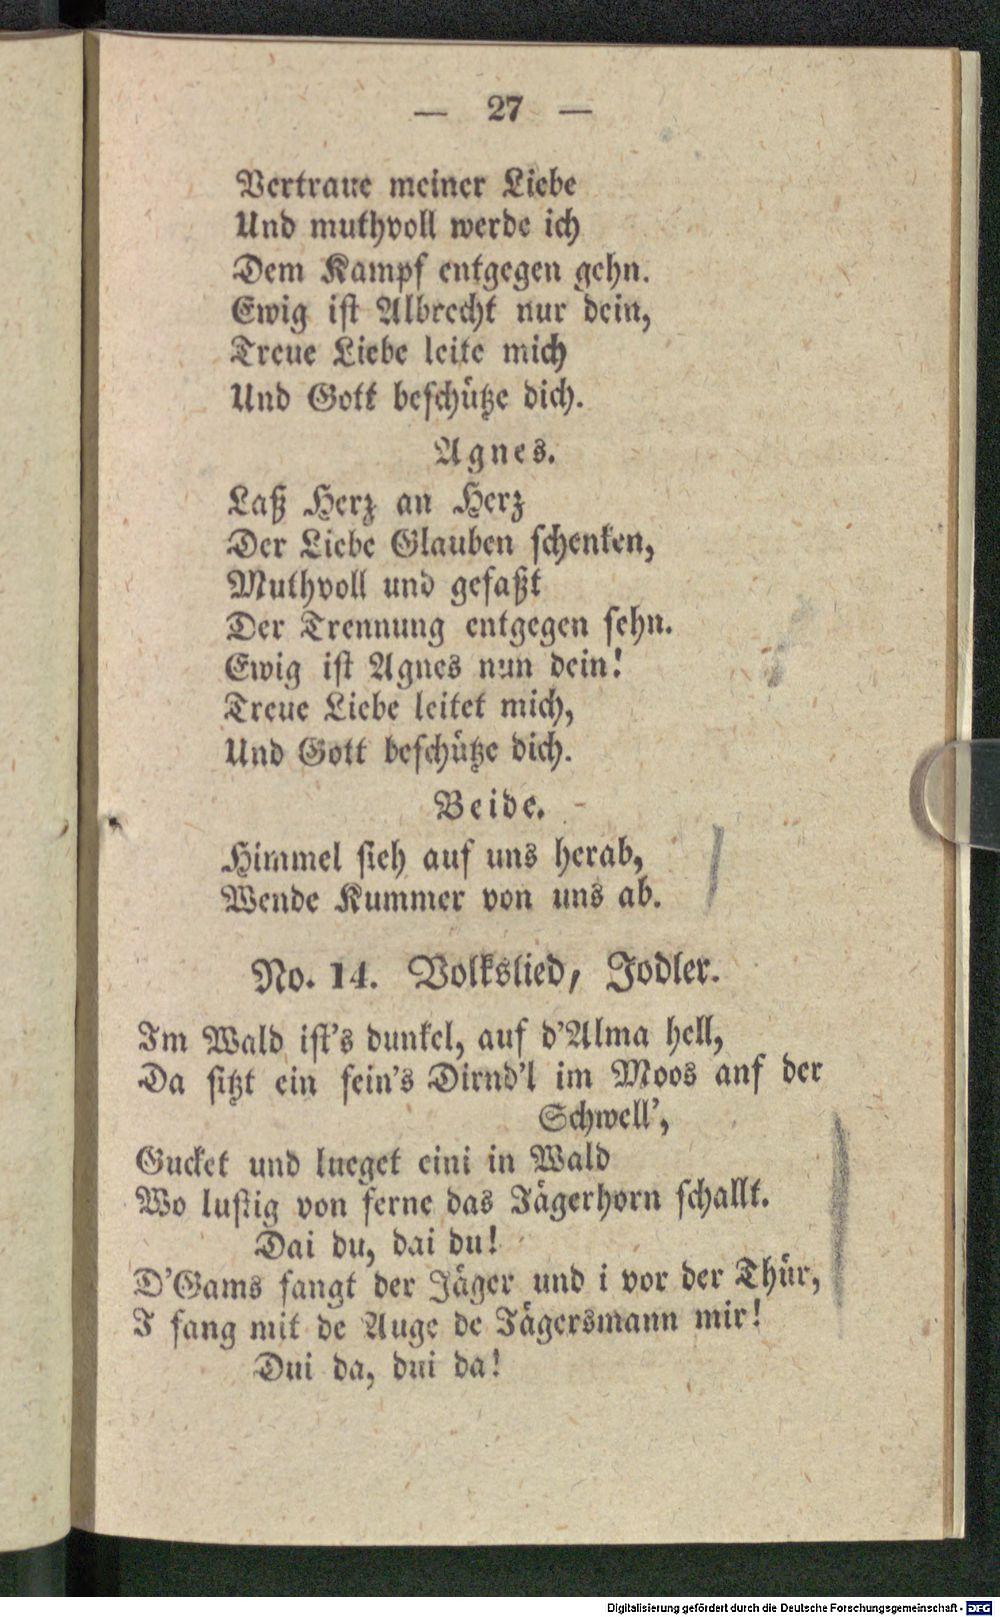 — 27 —
Vertraue meiner Liebe
Und muthvoll werde ich
Dem Kampf entgegen gehn.
Ewig ist Albrecht nur dein,
Treue Liebe leite mich
Und Gott beschütze dich.
Agnes.
Laß Herz an Herz
Der Liebe Glauben schenken,
Muthvoll und gefaßt
Der Trennung entgegen sehn.
Ewig ist Agnes nun dein!
Treue Liebe leitet mich,
Und Gott beschütze dich.
Beide.
Himmel sieh auf uns herab,
Wende Kummer von uns ab.
No. 14. Volkslied, Jodler.
Im Wald ist's dunkel, auf d'Alma hell,
Da sitzt ein fein's Dirnd'l im Moos anf der
Schwell',
Gucket und lueget eini in Wald
Wo lustig von ferne das Jägerhorn schallt.
Dai du, dai du!
D'Gams fangt der Jäger und i vor der Thür,
I fang mit de Auge de Jägersmann mir!
Dui da, dui da!
Digitalisierung gefördert durch die Deutsche Forschungsgemeinschaft - DFG